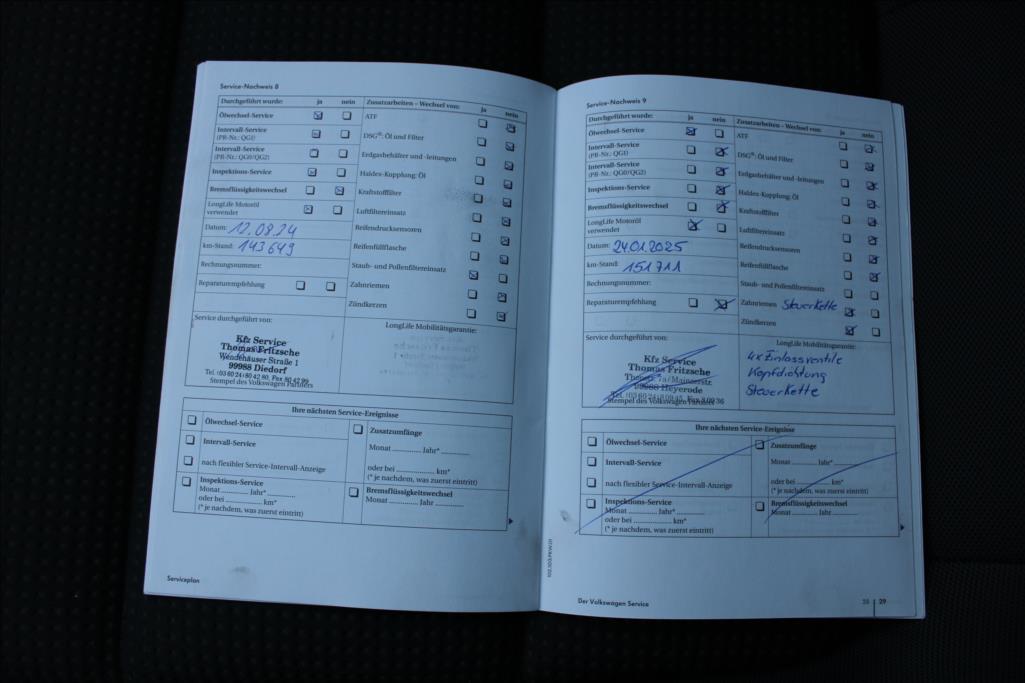 Service-Nachweis 8
Durchgeführt wurde: ja nein
Ölwechsel-Service
Intervall-Service
(PR-Nr.: QG1)
Intervall-Service
(PR-Nr.: QG0/QG2)
Inspektions-Service
Bremsflüssigkeitswechsel
LongLife Motoröl
verwendet
Datum: 12.08.24
km-Stand: 143649
Rechnungsnummer:
Reparaturempfehlung
Zusatzarbeiten – Wechsel von: ja nein
ATF
DSG®: Öl und Filter
Erdgasbehälter und -leitungen
Haldex-Kupplung: Öl
Kraftstofffilter
Luftfiltereinsatz
Reifendrucksensoren
Reifenfüllflasche
Staub- und Pollenfiltereinsatz
Zahnriemen
Zündkerzen
Service durchgeführt von:
Kfz Service
Thomas Fritzsche
Wendehäuser Straße 1
99988 Diedorf
Tel. (03 60 24) 80 42 80, Fax 80 42 99
Stempel des Volkswagen Partners
LongLife Mobilitätsgarantie:
Ihre nächsten Service-Ereignisse
Ölwechsel-Service
Intervall-Service
nach flexibler Service-Intervall-Anzeige
Inspektions-Service
Monat ............ Jahr* ............
oder bei ............ km*
(* je nachdem, was zuerst eintritt)
Zusatzumfänge
Monat ............ Jahr* ............
oder bei ............ km*
(* je nachdem, was zuerst eintritt)
Bremsflüssigkeitswechsel
Monat ............ Jahr ............
Serviceplan
Service-Nachweis 9
Durchgeführt wurde: ja nein
Ölwechsel-Service
Intervall-Service
(PR-Nr.: QG1)
Intervall-Service
(PR-Nr.: QG0/QG2)
Inspektions-Service
Bremsflüssigkeitswechsel
LongLife Motoröl
verwendet
Datum: 24.01.2025
km-Stand: 151711
Rechnungsnummer:
Reparaturempfehlung
Zusatzarbeiten – Wechsel von: ja nein
ATF
DSG®: Öl und Filter
Erdgasbehälter und -leitungen
Haldex-Kupplung: Öl
Kraftstofffilter
Luftfiltereinsatz
Reifendrucksensoren
Reifenfüllflasche
Staub- und Pollenfiltereinsatz
Zahnriemen Steuerkette
Zündkerzen
Service durchgeführt von:
Kfz Service
Thomas Fritzsche
99988 Heyerode
Stempel des Volkswagen Partners
LongLife Mobilitätsgarantie:
4x Einlassventile
Kopfdichtung
Steuerkette
Ihre nächsten Service-Ereignisse
Ölwechsel-Service
Intervall-Service
nach flexibler Service-Intervall-Anzeige
Inspektions-Service
Monat ............ Jahr* ............
oder bei ............ km*
(* je nachdem, was zuerst eintritt)
Zusatzumfänge
Monat ............ Jahr* ............
oder bei ............ km*
(* je nachdem, was zuerst eintritt)
Bremsflüssigkeitswechsel
Monat ............ Jahr ............
Der Volkswagen Service
28 29